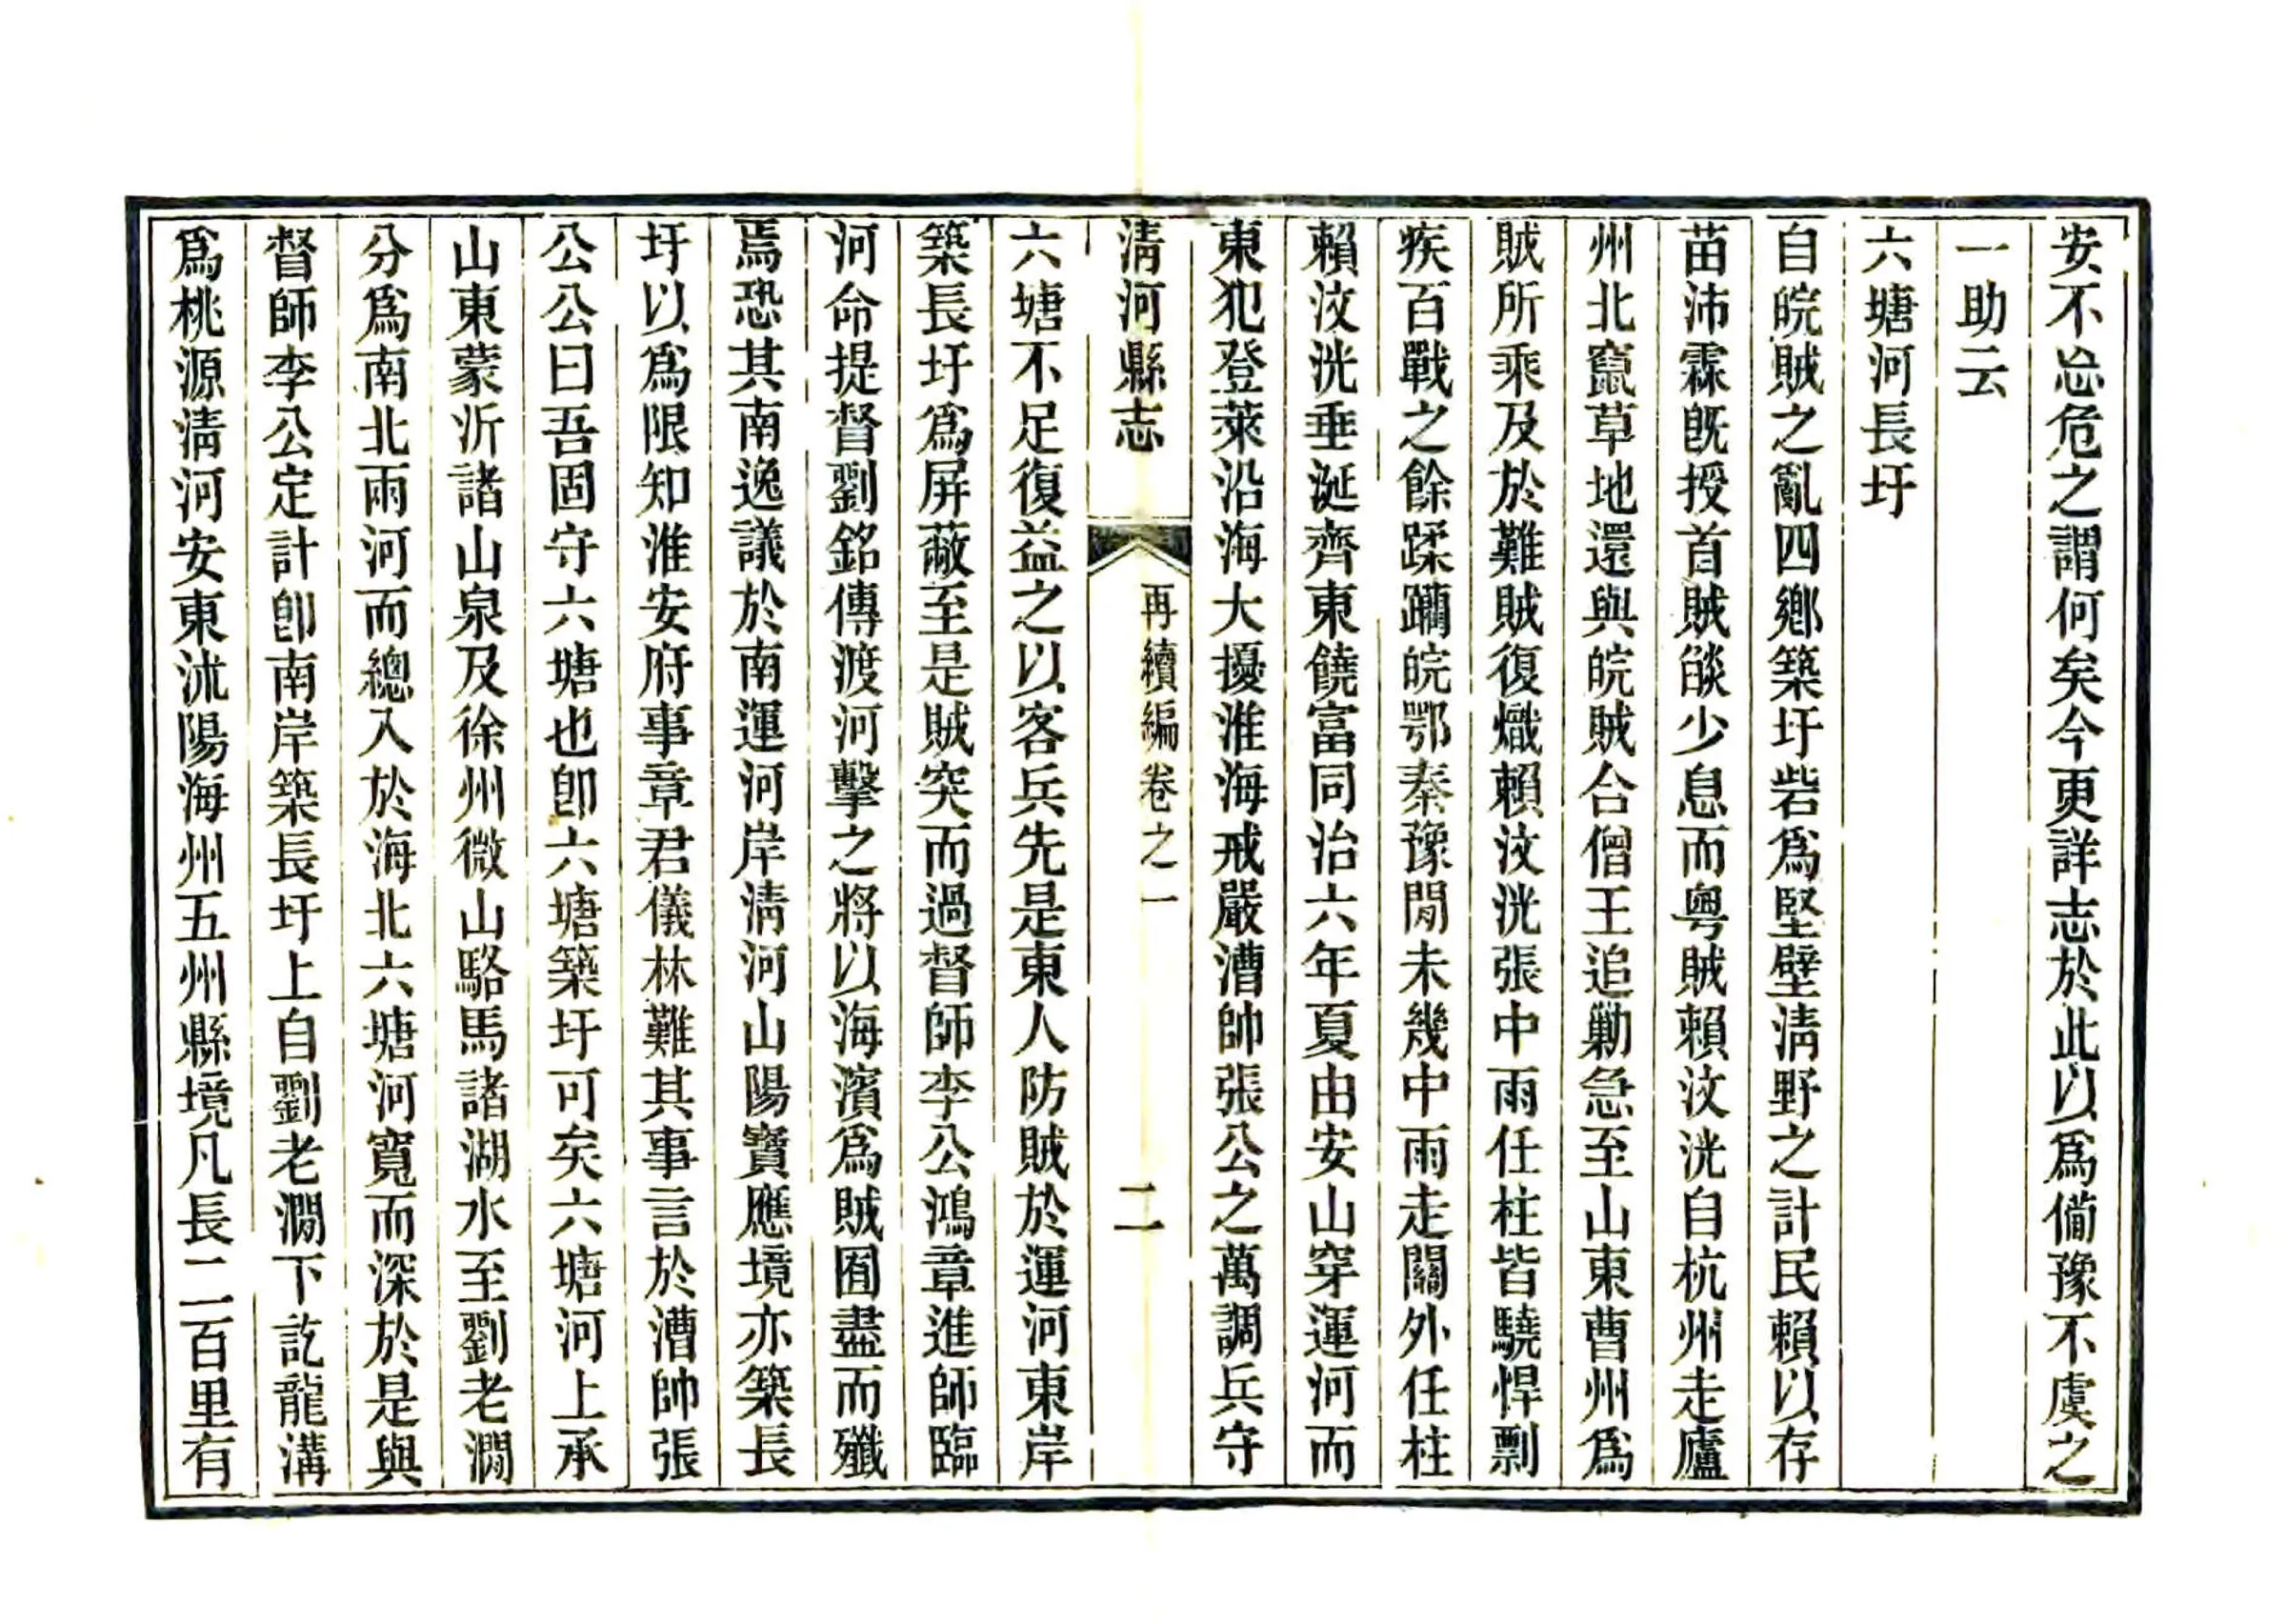 安不忘危之謂何矣今更詳志於此以爲備豫不虞之
一助云
六塘河長圩
自皖賊之亂四鄉築圩砦爲堅壁淸野之計民賴以存
苗沛霖旣授首賊燄少息而粵賊賴汶洸自杭州走廬
州北竄草地還與皖賊合僧王追勦急至山東曹州爲
賊所乘及於難賊復熾賴汶洸張中雨任柱皆驍悍剽
疾百戰之餘蹂躪皖鄂秦豫閒未幾中雨走關外任柱
賴汶洸垂涎齊東饒富同治六年夏由安山穿運河而
東犯登萊沿海大擾淮海戒嚴漕帥張公之萬調兵守
淸河縣志
再續編卷之一
二
六塘不足復益之以客兵先是東人防賊於運河東岸
築長圩爲屏蔽至是賊突而過督師李公鴻章進師臨
河命提督劉銘傳渡河擊之將以海濱爲賊囿盡而殲
焉恐其南逸議於南運河岸淸河山陽寶應境亦築長
圩以爲限知淮安府事章君儀林難其事言於漕帥張
公公曰吾固守六塘也卽六塘築圩可矣六塘河上承
山東蒙沂諸山泉及徐州微山駱馬諸湖水至劉老澗
分爲南北兩河而總入於海北六塘河寬而深於是與
督師李公定計卽南岸築長圩上自劉老澗下訖龍溝
爲桃源淸河安東沭陽海州五州縣境凡長二百里有